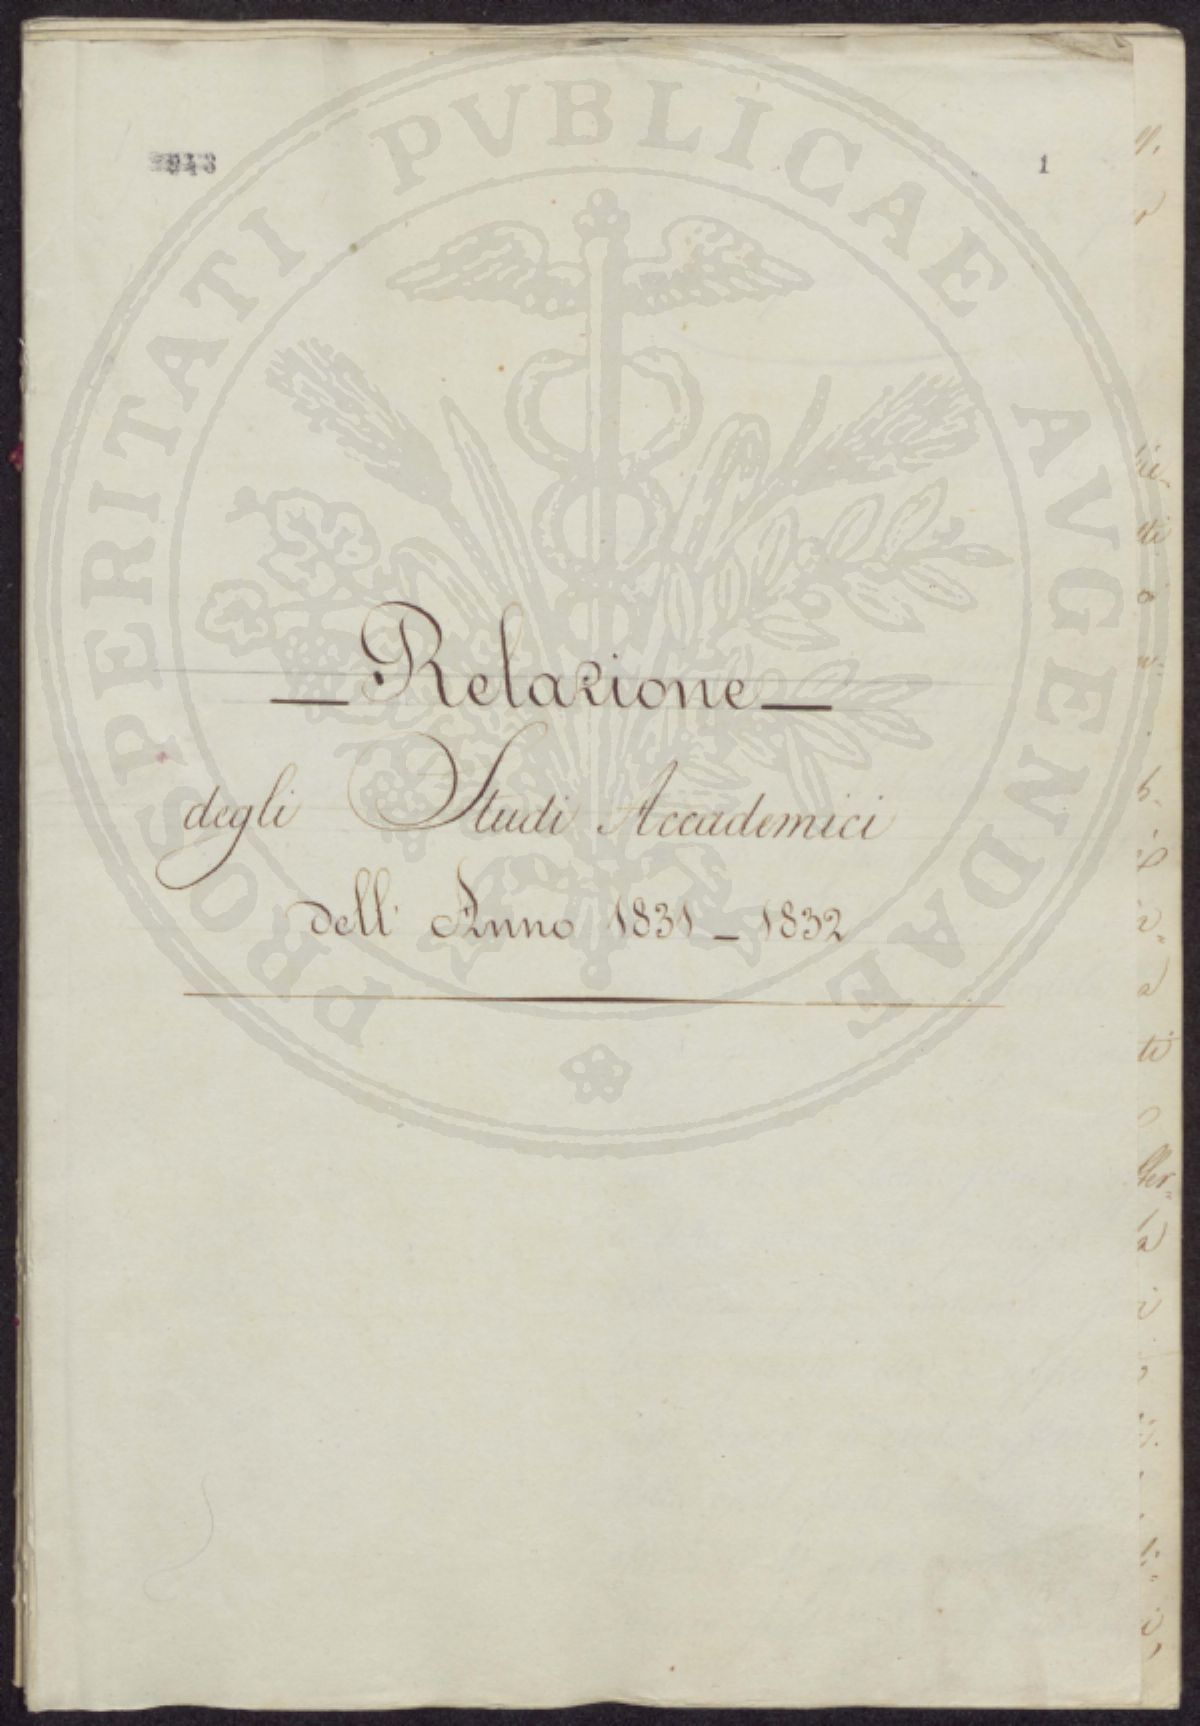 PROSPERITATI PUBLICAE AVGENDAE
1
Relazione
degli Studi Accademici
dell' Anno 1831 _ 1832